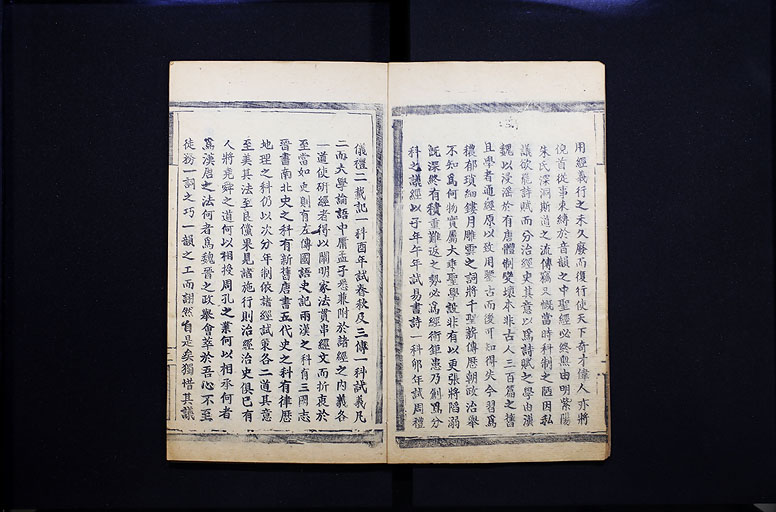 用經義行之未久廢而復行使天下奇才偉人亦將
俛首從事束縛於音韻之中聖經必終無由明紫陽
朱氏深洞斯道之流傳竊又慨當時科制之陋因私
議欲罷詩賦而分治經史其意以爲詩賦之學由漢
魏以浸淫於有唐體制變壞本非古人三百篇之舊
且學者通經原以致用鑒古而後可知得失今習爲
穠郁瑣細鏤月雕雲之詞將千聖薪傳歷朝政治舉
不知爲何物實屬大壅聖學設非有以更張將陷溺
旣深終有積重難返之勢必爲經術鉅患乃創爲分
科之議經以子年午年試易書詩一科卯年試周禮
儀禮二戴記一科酉年試春秋及三傳一科試義凡
二而大學論語中庸孟子悉兼附於諸經之內義各
一道使研經者得以闡明家法貫串經文而折衷於
至當如史則有左傳國語史記兩漢之科有三國志
晉書南北史之科有新舊唐書五代史之科有律歷
地理之科仍以次分年制依諸經試策各二道其意
至美其法至良儻果見諸施行則治經治史俱巳有
人將堯舜之道何以相授周孔之業何以相承何者
爲漢唐之法何者爲魏晉之政舉會萃於吾心不至
徒務一詞之巧一韻之工而詡然自是矣獨惜其議